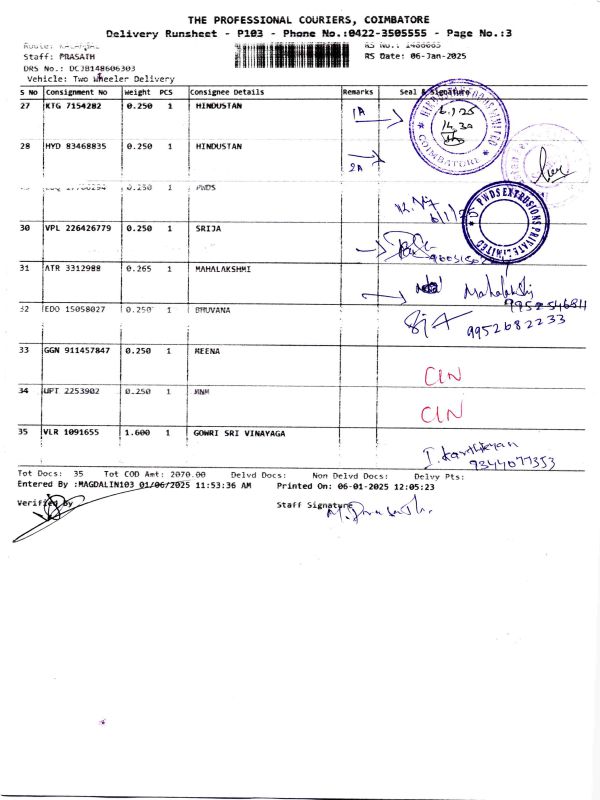 THE PROFESSIONAL COURIERS, COIMBATORE
Delivery Runsheet - P103 - Phone No.:0422-3505555 - Page No.:3
Staff: PRASATH
RS Date: 06-Jan-2025
DRS No.: DCJB148606303
Vehicle: Two Wheeler Delivery
S No Consignment No Weight PCS Consignee Details Remarks Seal & Signature
27 KTG 7154282 0.250 1 HINDUSTAN 1A
6.1.25
14.30
COIMBATORE
28 HYD 83468835 0.250 1 HINDUSTAN 2A
0.250 1 PWDS
PWDS EXTRUSIONS PRIVATE LIMITED
30 VPL 226426779 0.250 1 SRIJA
31 ATR 3312988 0.265 1 MAHALAKSHMI
Mahalakshmi
32 EDO 15058027 0.250 1 BHUVANA
9952682233
33 GGN 911457847 0.250 1 REENA
CIN
34 UPT 2253902 0.250 1 JINM
CIN
35 VLR 1091655 1.600 1 GOWRI SRI VINAYAGA
I. Karthikeyan
9344077353
Tot Docs: 35 Tot COD Amt: 2070.00 Delvd Docs: Non Delvd Docs: Delvy Pts:
Entered By :MAGDALIN103 01/06/2025 11:53:36 AM Printed On: 06-01-2025 12:05:23
Verified By
Staff Signature